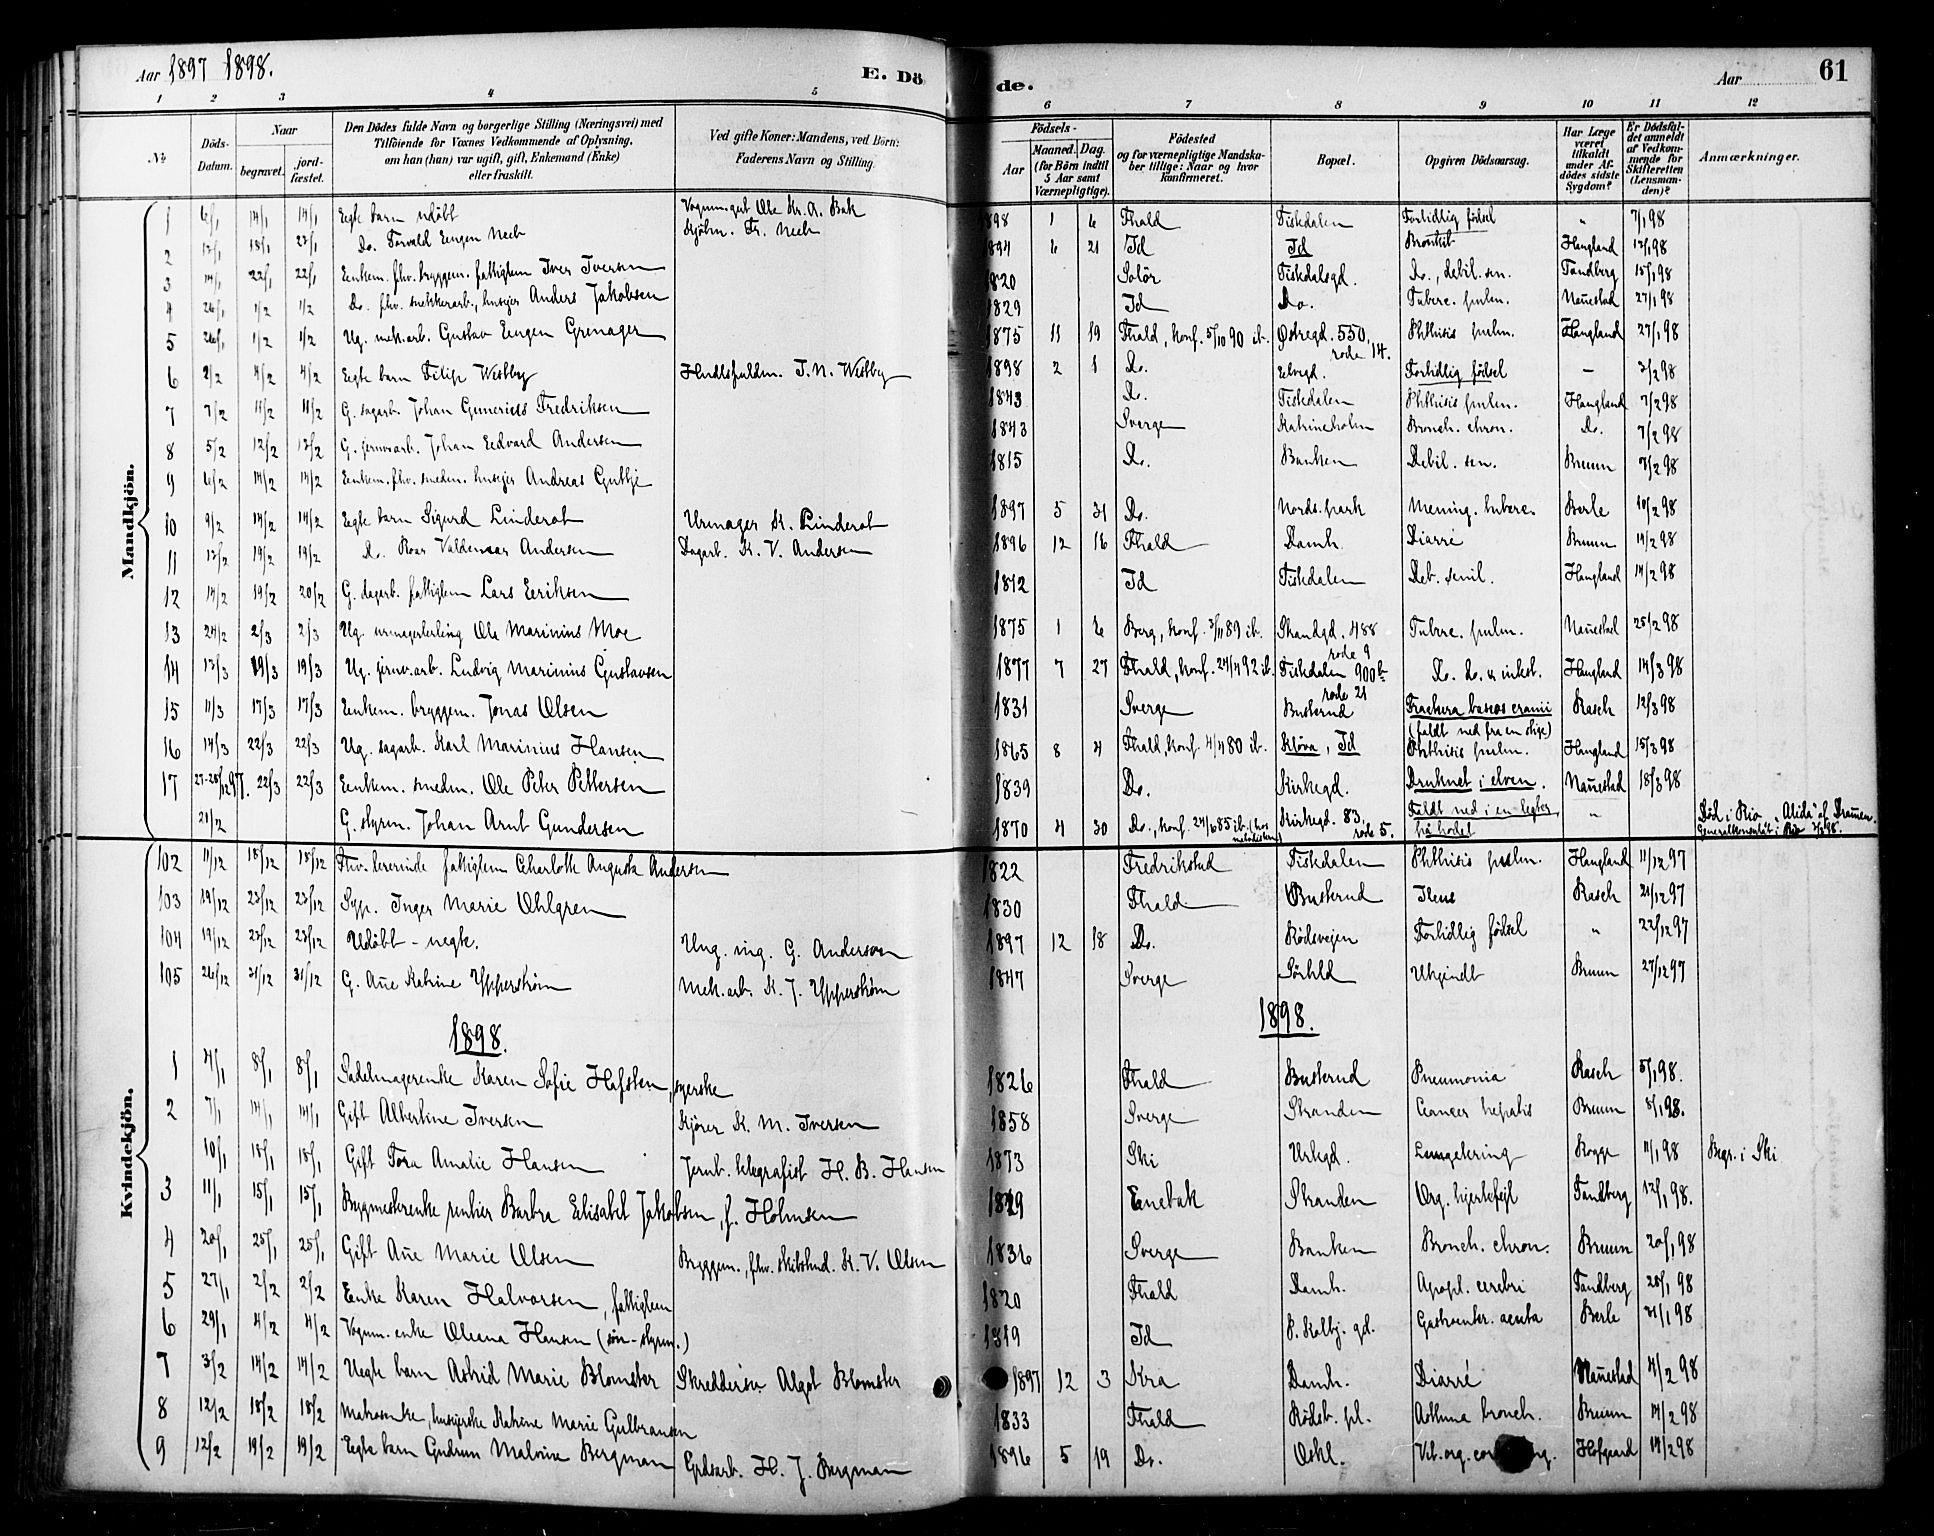 Aar 1897 1898.
E. Dö
de.
Aar
61
1 2 3 4 5 6 7 8 9 10 11 12
No.
Döds-Datum.
Naar
begravet.
jord-fæstet.
Den Dödes fulde Navn og borgerlige Stilling (Næringsvei) med Tilföiende for Voxnes Vedkommende af Oplysning, om han (hun) var ugift, gift, Enkemand (Enke) eller fraskilt.
Ved gifte Koner: Mandens, ved Börn: Faderens Navn og Stilling.
Födsels-
Aar
Maaned. Dag.
(for Börn indtil 5 Aar samt Værnepligtige).
Födested og for værnepligtige Mandskaber tillige: Naar og hvor konfirmeret.
Bopæl.
Opgiven Dödsaarsag.
Har Læge været tilkaldt under Afdödes sidste Sygdom?
Er Dödsfaldet anmeldt af Vedkommende for Skifteretten (Lensmanden)?
Anmærkninger.
Mandkjön.
1 6/1 14/1 14/1 Egte barn udöbt Vognm.gut Ole Kr. A. Bak 1898 1 6 Fhald Fiskdalen Fortidlig födsel " 7/1 98
2 13/1 18/1 23/1 Do. Torvald Eugen Nech Kjöbm. Fr. Nech 1894 6 21 Id Id Bronkit Haugland 13/1 98
3 14/1 22/1 22/1 Enkem. fhv. bryggem. fattiglem Iver Iversen 1820 Solör Fiskdalsgd. Do., debil. sen. Tandberg 15/1 98
4 26/1 1/2 1/2 Do. fhv. snekkerarb., husejer Anders Jakobsen 1829 Id Do. Tuberc. pulm. Nannestad 27/1 98
5 26/1 1/2 1/2 Ug. mek.arb. Gustav Eugen Grenager 1875 11 19 Fhald, konf. 5/10 90 ib. Østregd. 550, rode 14. Phthisis pulm. Haugland 27/1 98
6 2/2 4/2 4/2 Egte barn Filip Westby Hndlsfuldm. J. N. Westby 1898 2 1 Do. Elvegd. Fortidlig födsel — 3/2 98
7 7/2 11/2 11/2 G. sagarb. Johan Fredriksen 1843 Do. Fiskdalen Phthisis pulm. Haugland 7/2 98
8 5/2 12/2 12/2 G. jernv.arb. Johan Edvard Andersen 1843 Sverge Katrineholm Bronch. chron. Do. 7/2 98
9 6/2 14/2 14/2 Enkem. fhv. smedm. husejer Andreas 1815 Do. Banken Debil. sen. Bruun 7/2 98
10 9/2 14/2 14/2 Egte barn Sigurd Linderot Urmager K. Linderot 1897 5 31 Do. Nords. park Mening. tuberc. Berle 10/2 98
11 13/2 19/2 19/2 Do. Roar Valdemar Andersen Dagarb. K. V. Andersen 1896 12 16 Fhald Damh. Diarré Bruun 14/2 98
12 14/2 19/2 20/2 G. dagarb. fattiglem Lars Eriksen 1812 Id Fiskdalen Deb. senil. Haugland 14/2 98
13 24/2 2/3 2/3 Ug. urmagerlærling Ole Marinius Moe 1875 1 6 Berg, konf. 3/11 89 ib. Strandgd. 488 rode 9 Tuberc. pulm. Nannestad 25/2 98
14 13/3 19/3 19/3 Ug. jernv.arb. Ludvig Marinius Gustavsen 1877 7 27 Fhald, konf. 24/4 92 ib. Fiskdalen 900 b rode 21 Do. Do. & inkst. Haugland 14/3 98
15 11/3 17/3 17/3 Enkem. bryggem. Jonas Olsen 1831 Sverge Busterud Fractura baseos cranii (faldt ned fra en stige) Rasch 12/3 98
16 14/3 22/3 22/3 Ug. sagarb. Karl Marinius Hansen 1865 8 4 Fhald, konf. 4/4 80 ib. Klöva, Id Phthisis pulm. Haugland 15/3 98
17 27-28/12 97. 22/3 22/3 Enkem. smedm. Ole Peter Pettersen 1839 Do. Kirkegd. Druknet i elven. Nannestad 18/3 98
21/2 G. styrm. Johan Arnt Gundersen 1870 4 30 Do., konf. 24/6 85 ib. (hos metodisten) Kirkegd. 83, rode 5. Faldt ned i en på hodet " Död i Rio "Alida" af Drammen. Generalkonsulat i Rio
Kvindekjön.
102 11/12 18/12 18/12 Fhv. lererinde fattiglem Charlotte Augusta Andersen 1822 Fredrikstad Fiskdalen Phthisis pulm. Haugland 11/12 97
103 19/12 23/12 23/12 Syp. Inger Marie Ohlgren 1830 Fhald Busterud Ileus Rasch 21/12 97
104 19/12 23/12 23/12 Udöbt - uegte. Ung. ing. G. Anderson 1897 12 18 Do. Rödsvejen Fortidlig födsel " 22/12 97
105 26/12 31/12 31/12 G. Ane Katrine Ypperström Mek.arb. K. J. Ypperström 1847 Sverge Sörhld Utgindt Bruun 27/12 97
1898. 1898.
1 4/1 8/1 8/1 Sadelmagerenke Karen Sofie Hafsten, syerske 1826 Fhald Busterud Pneumonia Rasch 5/1 98.
2 7/1 14/1 14/1 Gift Albertine Iversen Kjörer K. M. Iversen 1858 Sverge Stranden Cancer hepatis Bruun 8/1 98.
10/1 15/1 15/1 Gift Tora Amalie Hansen Jernb. telegrafist H. B. Hansen 1873 Ski Urtegd. Rogge 11/1 98 Begr. i Ski
3 11/1 15/1 15/1 Bygmesterenke rentier Barbra Elisabet Jakobsen, f. Holmsen 1829 Enebak Stranden Org. hjertefejl Tandberg 12/1 98.
4 20/1 25/1 25/1 Gift Ane Marie Olsen Bryggem., fhv. skibstmd. K. V. Olsen 1836 Sverge Banken Bronch. chron. Bruun 20/1 98
5 27/1 2/2 2/2 Enke Karen Halvorsen, fattiglem 1820 Fhald Damh. Apopl. cerebri Tandberg 28/1 98
6 29/1 4/2 4/2 Vognm. enke Oleana Hansen (sön - styrm.) 1819 Id P. Kolbj. gd. Gastroenter. acuta Berle 31/1 98
7 3/2 14/2 14/2 Uegte barn Astrid Marie Blomster Skreddersv. Algot Blomster 1897 12 3 Kra Damh. Diarré Nannestad 4/2 98
8 12/2 18/2 18/2 Matrosenke, husejerske Katrine Marie Gulbransen 1833 Fhald Rödsb. pl. Asthma bronch. Bruun 14/2 98
9 12/2 19/2 19/2 Egte barn Gudrun Malvine Bergman Grdsarb. H. J. Bergman 1896 5 19 Do. Oskl. Vit. org. Hofgaard 14/2 98